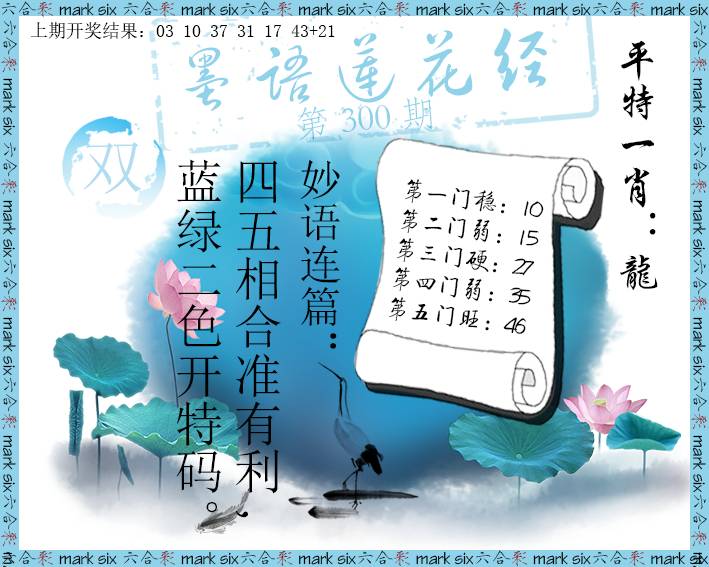 上期开奖结果：03 10 37 31 17 43+21
墨语莲花经
第 300 期
双
平特一肖：龍
第一门稳：10
第二门弱：15
第三门硬：27
第四门弱：35
第五门旺：46
妙语连篇：
四五相合准有利、
蓝绿二色开特码。
六合彩 mark six 六合彩 mark six 六合彩 mark six 六合彩 mark six 六合彩 mark six